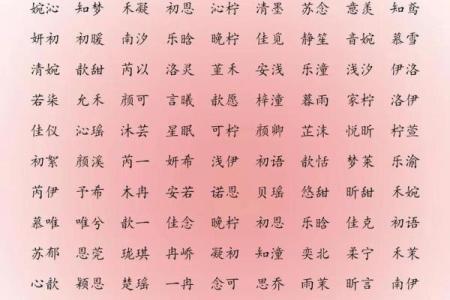 婉沁 知梦 禾凝 初恩 沁柠 清墨 苏念 意羡 知鸢
妍初 初暖 南汐 乐晗 晚柠 佳觅 静笙 音婉 慕雪
清婉 歆甜 芮以 洛灵 堇禾 安浅 乐潼 浅汐 伊洛
若柒 允禾 颜可 言曦 歆愿 梓潼 暮雨 家柠 洛伊
佳仪 沁瑶 沐芸 星眠 可柠 颜卿 芷沫 悦昕 柠萱
初絮 颜溪 芮一 妍希 浅伊 初语 歆恬 梦莱 乐渝
芮伊 予希 木冉 安若 诺恩 贝瑶 悠甜 昕甜 禾婉
慕唯 唯兮 歆一 佳念 晚柠 初恩 乐晗 佳克 初语
苏郁 恩莞 珑琪 冉峤 凝初 知潼 奕北 柔宁 禾茉
心歆 颖恩 楚瑶 一冉 念可 思乔 雨茉 昕言 南伊